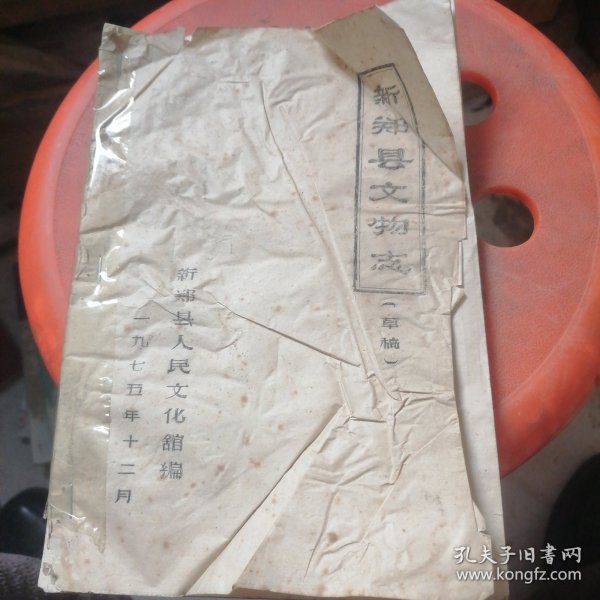 新郑县文物志
（草稿）
新郑县人民文化馆编
一九七五年十二月
孔夫子旧书网
www.kongfz.com